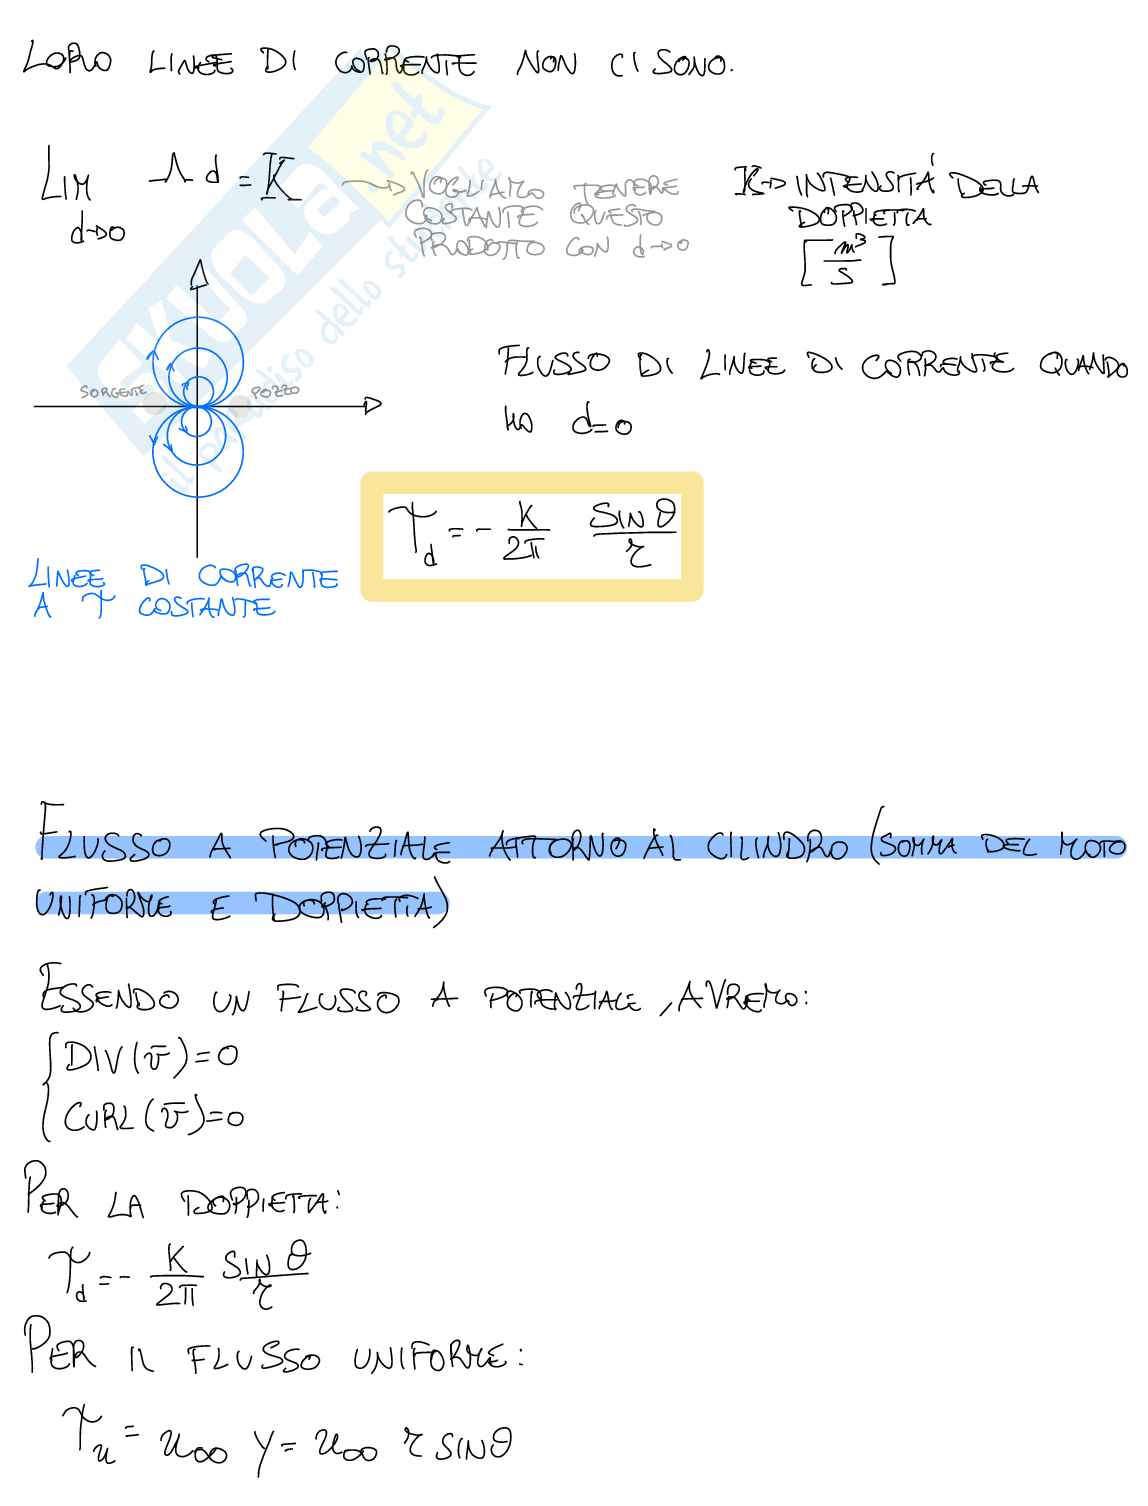 LORO LINEE DI CORRENTE NON CI SONO.
LIM d→0 Λ d = K → VOGLIAMO TENERE COSTANTE QUESTO PRODOTTO CON d→0
K→ INTENSITÁ DELLA DOPPIETTA [m³/s]
SORGENTE POZZO
FLUSSO DI LINEE DI CORRENTE QUANDO
HO d=0
Ψd = - K/2π SINθ/r
LINEE DI CORRENTE
A Ψ COSTANTE
FLUSSO A POTENZIALE ATTORNO AL CILINDRO (SOMMA DEL MOTO
UNIFORME E DOPPIETTA)
ESSENDO UN FLUSSO A POTENZIALE, AVREMO:
{DIV(v̄)=0
{CURL(v̄)=0
PER LA DOPPIETTA:
Ψd = - K/2π SINθ/r
PER IL FLUSSO UNIFORME:
Ψu = u∞ y = u∞ r SINθ
SKUOLA.net
il paradiso dello studente